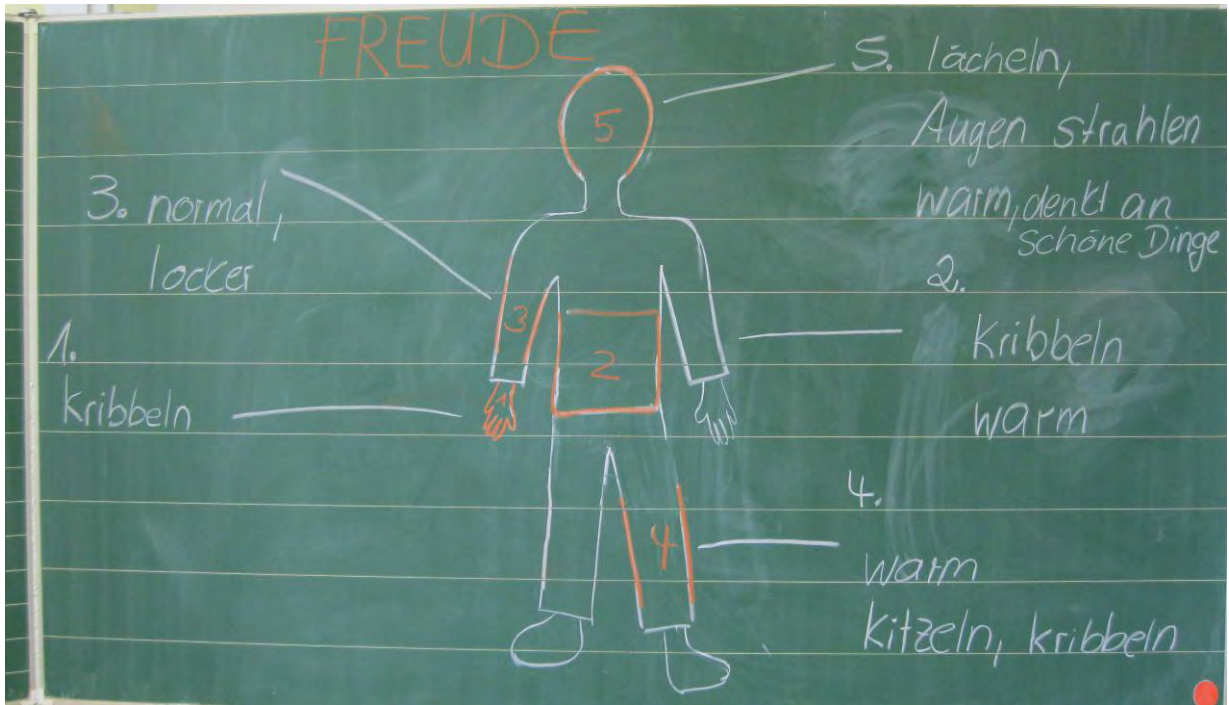 FREUDE
5. lächeln,
Augen strahlen
warm, denkt an
schöne Dinge
3. normal,
locker
1.
kribbeln
2.
kribbeln
warm
4.
warm
kitzeln, kribbeln
5
3
2
1
4